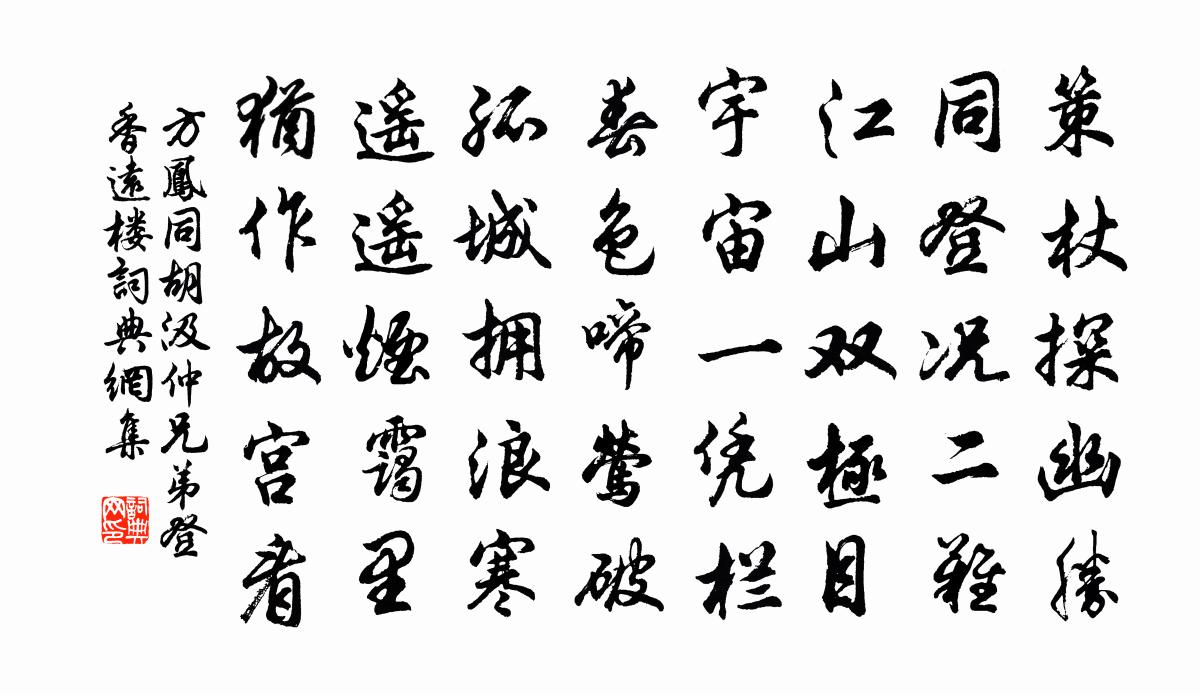 策杖探幽胜
同登况二难
江山双極目
宇宙一凭栏
春色啼莺破
孤城拥浪寒
遥遥煙霭里
猶作故宫看
方鳳同胡汲仲兄弟登
香遠楼詞典網集
詞典网印